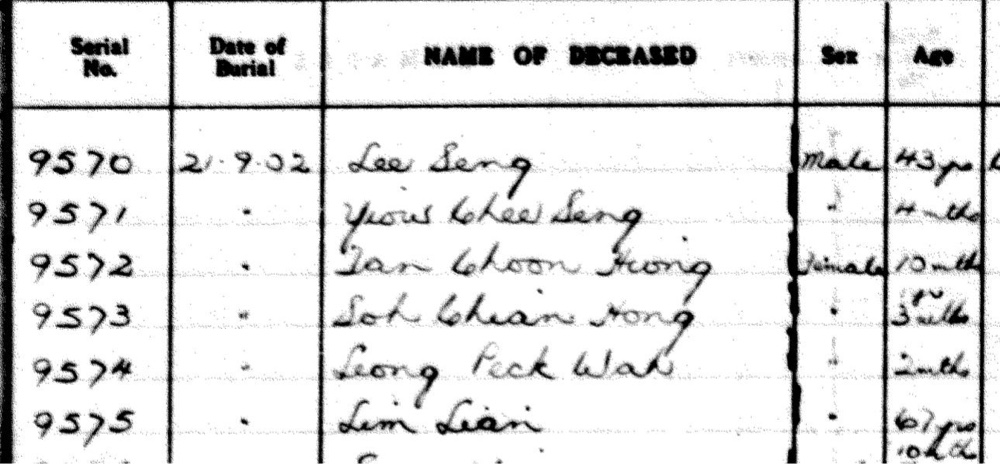 Serial No. Date of Burial NAME OF DECEASED Sex Age
9570 21.9.02 Lee Seng Male 43 yrs
9571 " Yiow Chee Seng " 4 mths
9572 " Tan Choon Hiong Female 10 mths
9573 " Soh Chian Hong " 3 mths
9574 " Leong Peck Wah " 2 mths
9575 " Lim Lian " 67 yrs
10 mths